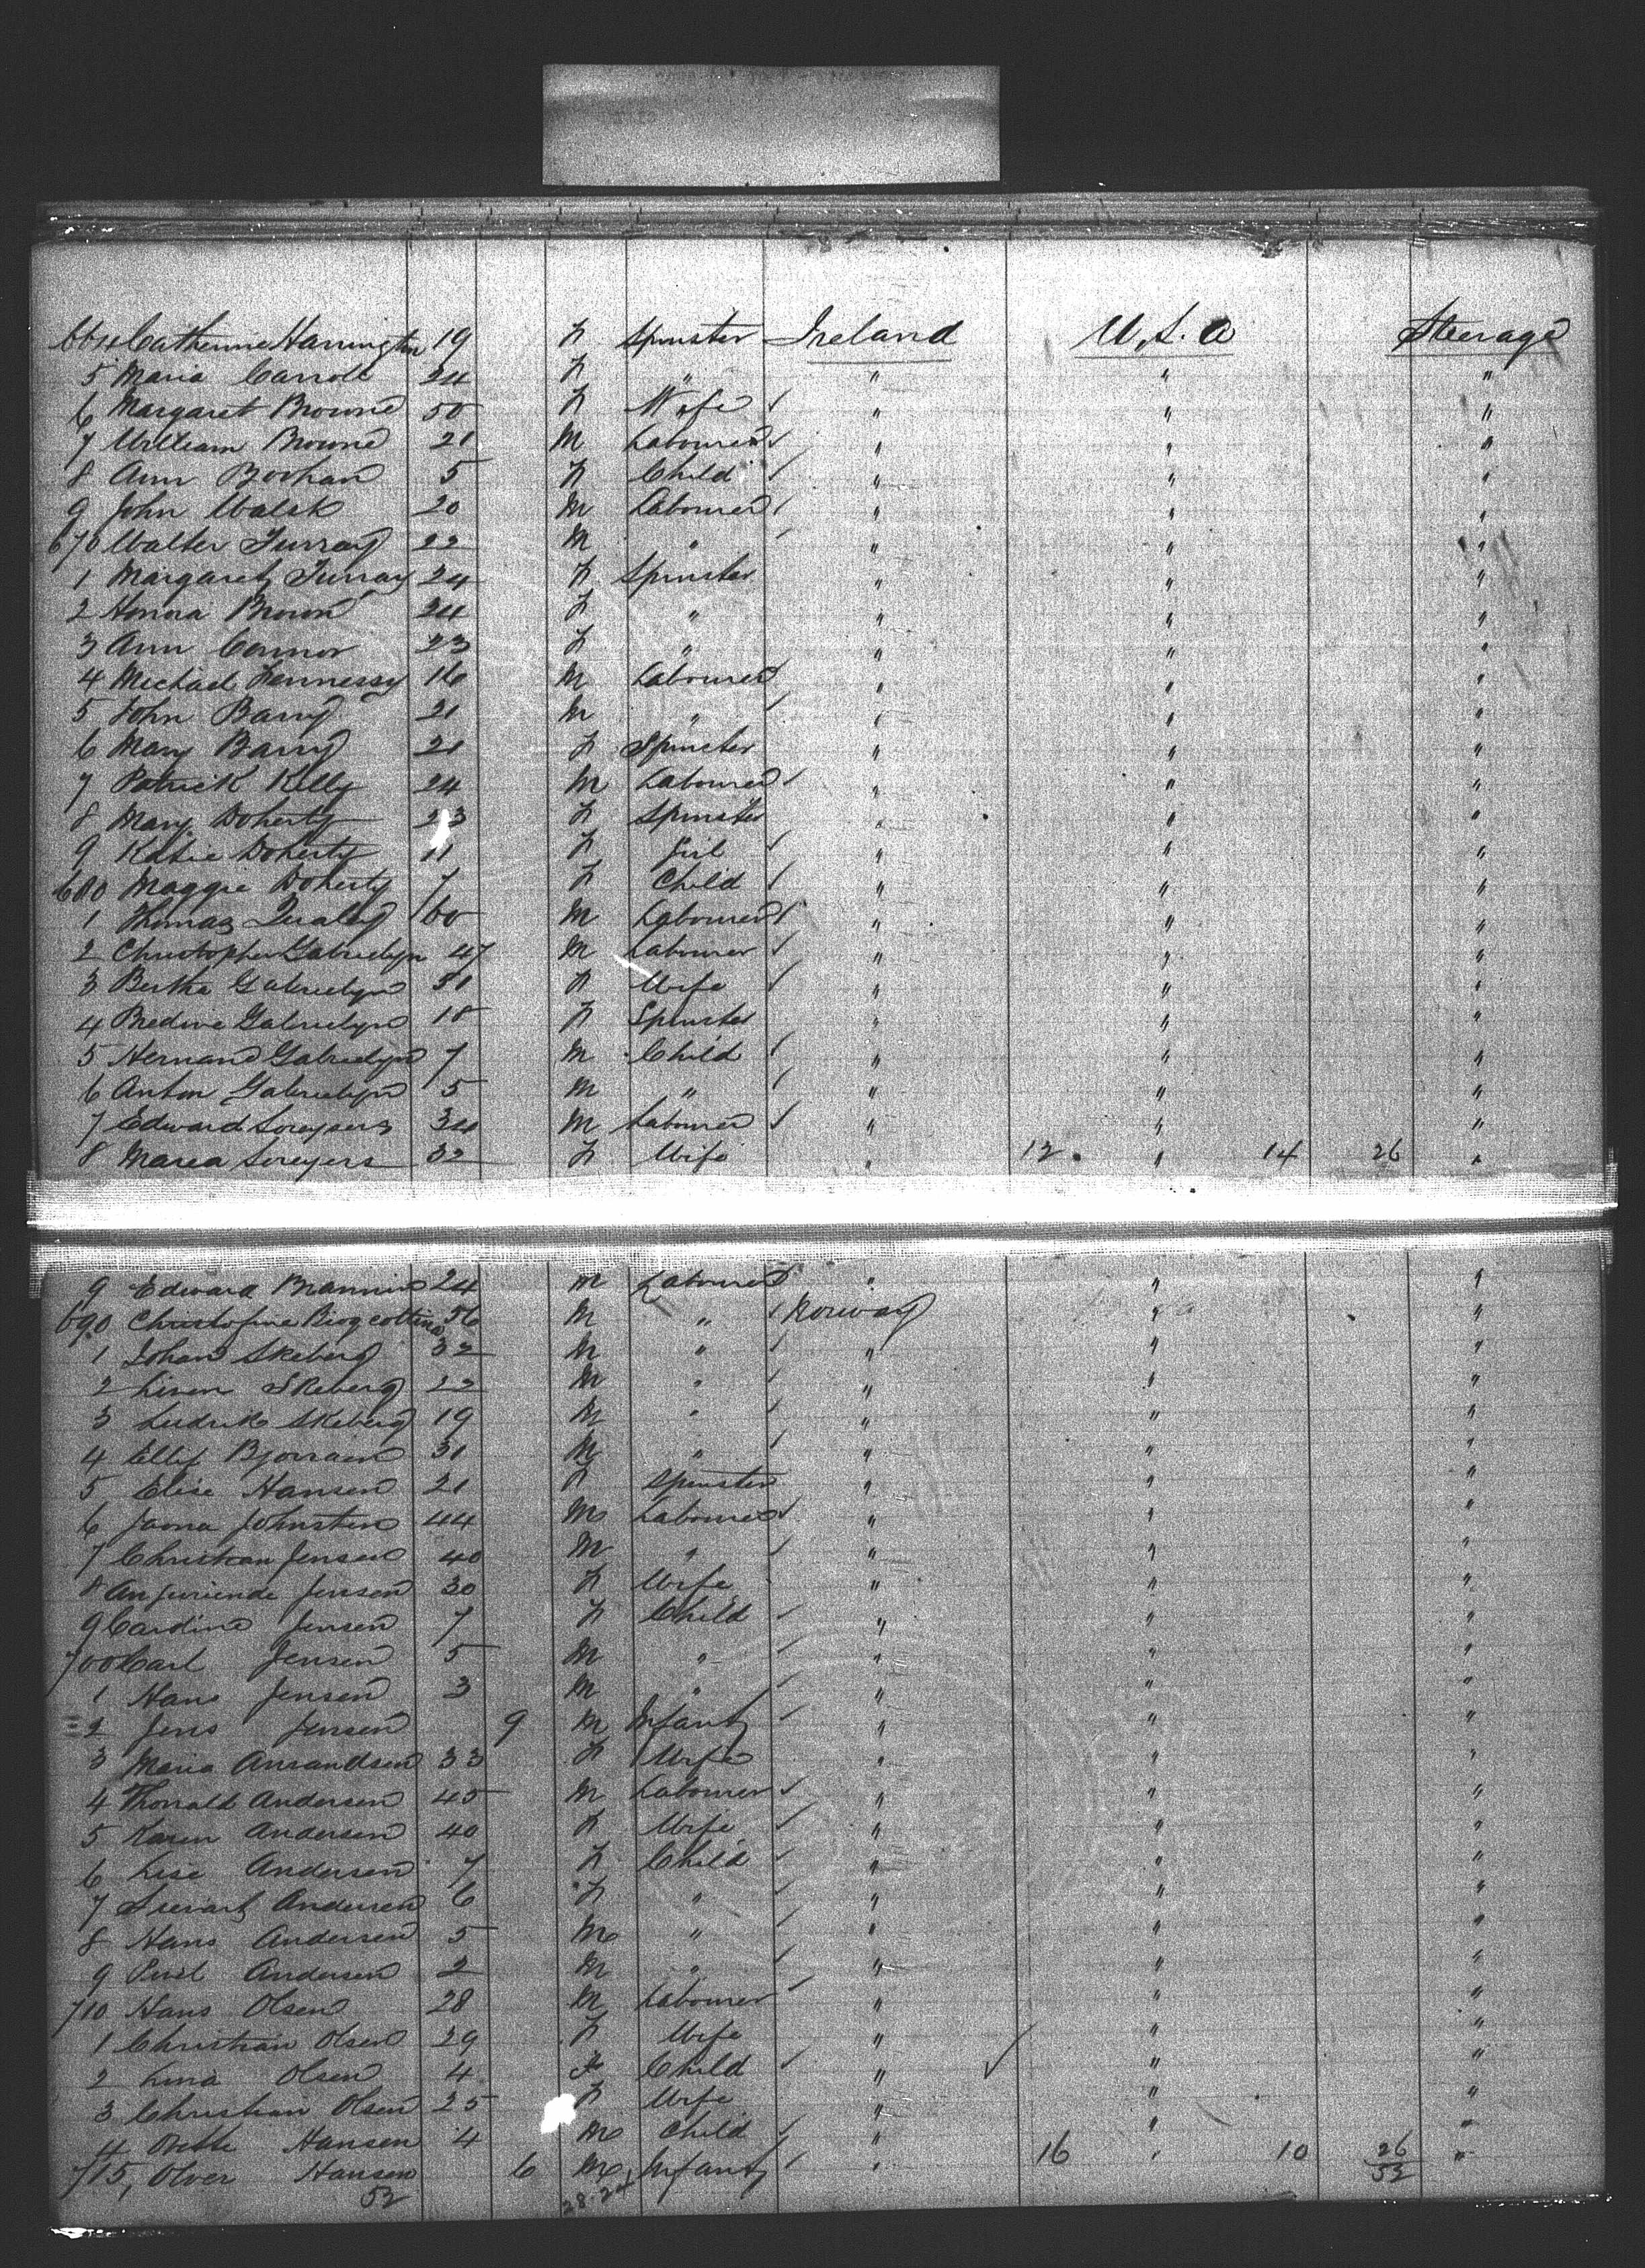 664 Catherine Harrington 19 F Spinster Ireland U.S.A Steerage
5 Maria Carroll 24 F " " " "
6 Margaret Browne 50 F Wife " " "
7 William Browne 21 M Labourer " " "
8 Ann Boohan 5 F Child " " "
9 John Walsh 20 M Labourer " " "
670 Walter Furray 22 M " " " "
1 Margaret Furray 24 F Spinster " " "
2 Honora Brown 24 F " " " "
3 Ann Connor 23 F " " " "
4 Michael Hennessy 16 M Labourer " " "
5 John Barry 21 M " " " "
6 Mary Barry 21 F Spinster " " "
7 Patrick Kelly 24 M Labourer " " "
8 Mary Doherty 23 F Spinster " " "
9 Katie Doherty 11 F Girl " " "
680 Maggie Doherty 7 F Child " " "
1 Thomas Qualey 60 M Labourer " " "
2 Christopher Gabrielyn 47 M Labourer " " "
3 Bertha Gabrielyn 51 F Wife " " "
4 Gabrielyn 18 F Spinster " " "
5 Hernand Gabrielyn 7 M Child " " "
6 Anton Gabrielyn 5 M " " " "
7 Edward 34 M Labourer " " "
8 Maria 32 F Wife " 12 " 14 26 "
9 Edward Brannin 24 M Labourer " " "
690 56 M " Norway " "
1 Johan Skeberg 32 M " " " "
2 Skeberg 22 M " " " "
3 Ludvik Skeberg 19 M " " " "
4 Ellif 31 M " " " "
5 Elise Hansen 21 F Spinster " " "
6 Johnsten 44 M Labourer " " "
7 Christian Jensen 40 M " " " "
8 Jensen 30 F Wife " " "
9 Cardine Jensen 7 F Child " " "
700 Carl Jensen 5 M " " " "
1 Hans Jensen 3 M " " " "
2 Jens Jensen 9 M Infant " " "
3 Maria 33 F Wife " " "
4 Andersen 45 M Labourer " " "
5 Karen Andersen 40 F Wife " " "
6 Lise Andersen 7 F Child " " "
7 Andersen 6 F " " " "
8 Hans Andersen 5 M " " " "
9 Andersen 2 M " " " "
710 Hans Olsen 28 M Labourer " " "
1 Christian Olsen 29 F Wife " " "
2 Lina Olsen 4 F Child " " "
3 Christian Olsen 25 F Wife " " "
4 Hansen 4 M Child " " "
715, Olver Hansen 6 M Infant " 16 " 10 26 "
52 28.24 52